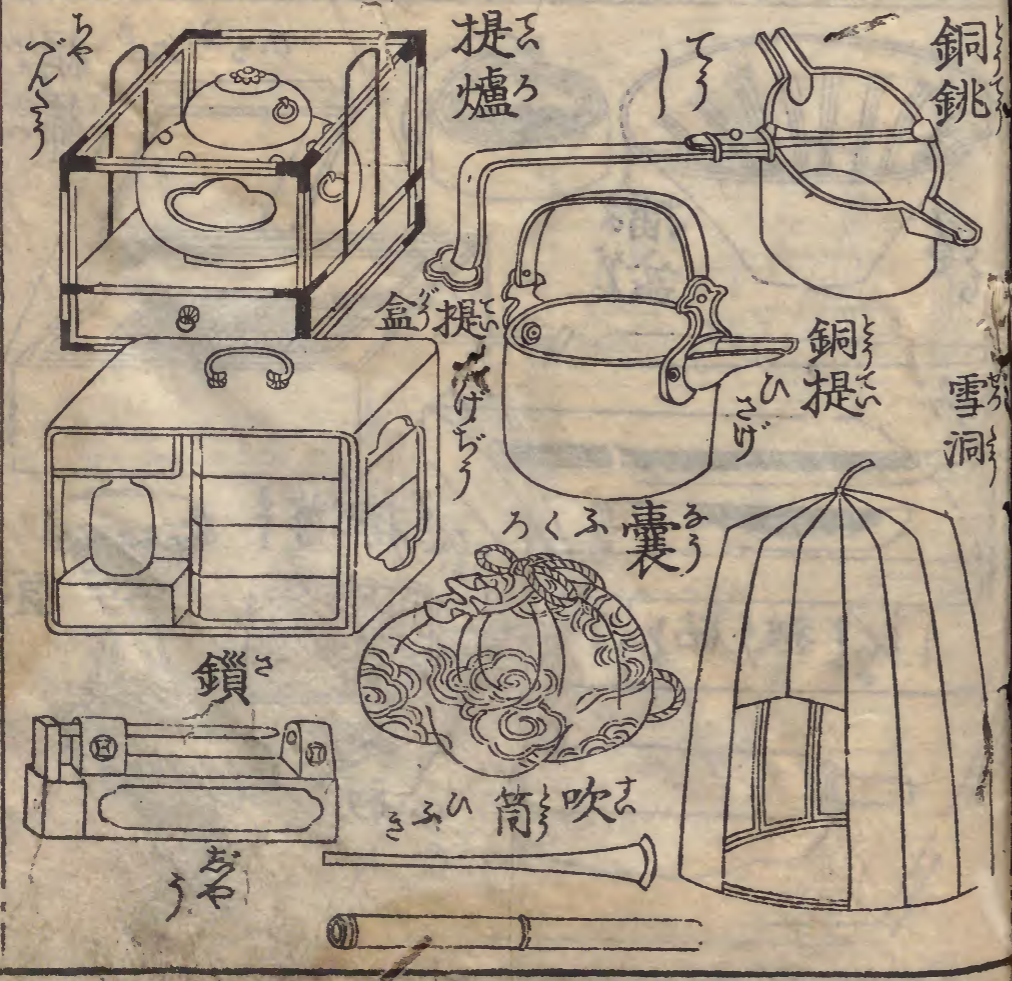 銅銚
とうてう
てうし
提爐
ていろ
ちやべんたう
銅提
とうてい
ひさげ
提盒
ていがう
さげぢう
雪洞
せつとう
囊
なう
ふくろ
鎖
さ
ぢやう
吹筒
すいとう
ひふき